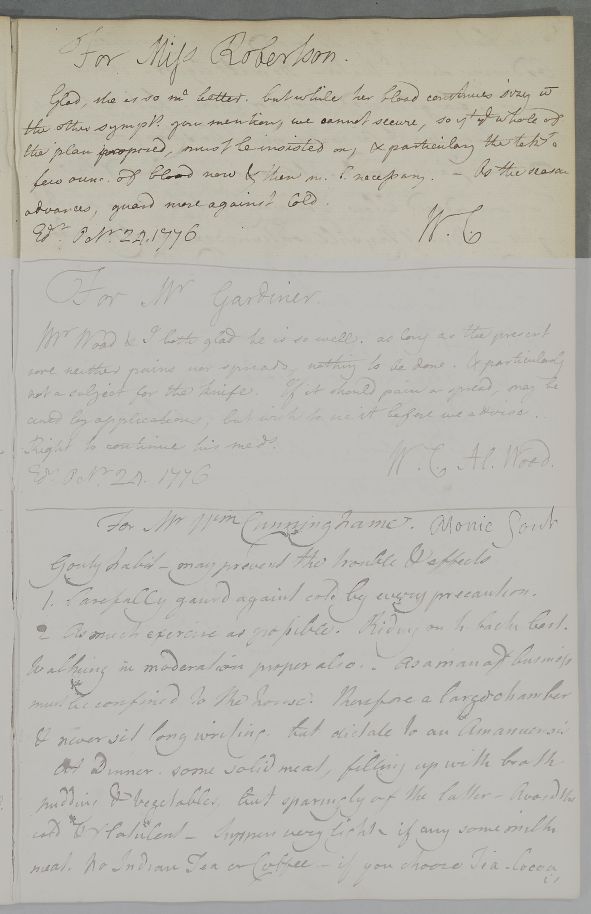 For Miss Robertson.
Glad, she is so mᵗ better. but while her blood continues sizy &
the other sympt. you mention, we cannot secure, so yᵗ yᵉ whole of
the plan proposed, must be insisted on, & particulary the takᵍ a
few ounc. of blood now & then as necessary. – As the season
advances, guard more against Cold.
Edʳ 9 Nʳ 22. 1776 W. C
For Mr Gardiner.
Mr Wood & I both glad he is so well. as long as the present
sore neither pains nor spreads, nothing to be done. & particularly
not a subject for the knife. If it should pain or spread, may be
cured by applications, but wish to see it before we advise.
Right to continue his medˢ.
Edʳ 9 Nʳ 22. 1776 W. C Al. Wood.
For Mr Wm Cunninghame. Atonic Gout
Gouty habit – may prevent the trouble & effects
1. Carefully gaurd against cold by every precaution.
2 As much exercise as possible. Riding on h. back best.
Walking in moderation proper also. As a man of business
must be confined to the house. Therefore a large chamber
& never sit long writing. but dictate to an Amanuensis
At Dinner. some solid meat, filling up with broth
pudding & vegetables, but sparingly of the latter – Avoid the
cold & flatulent – Suppers very light if any some milk
meat. No Indian Tea or Coffee – if you choose Tea – Cocoa
is